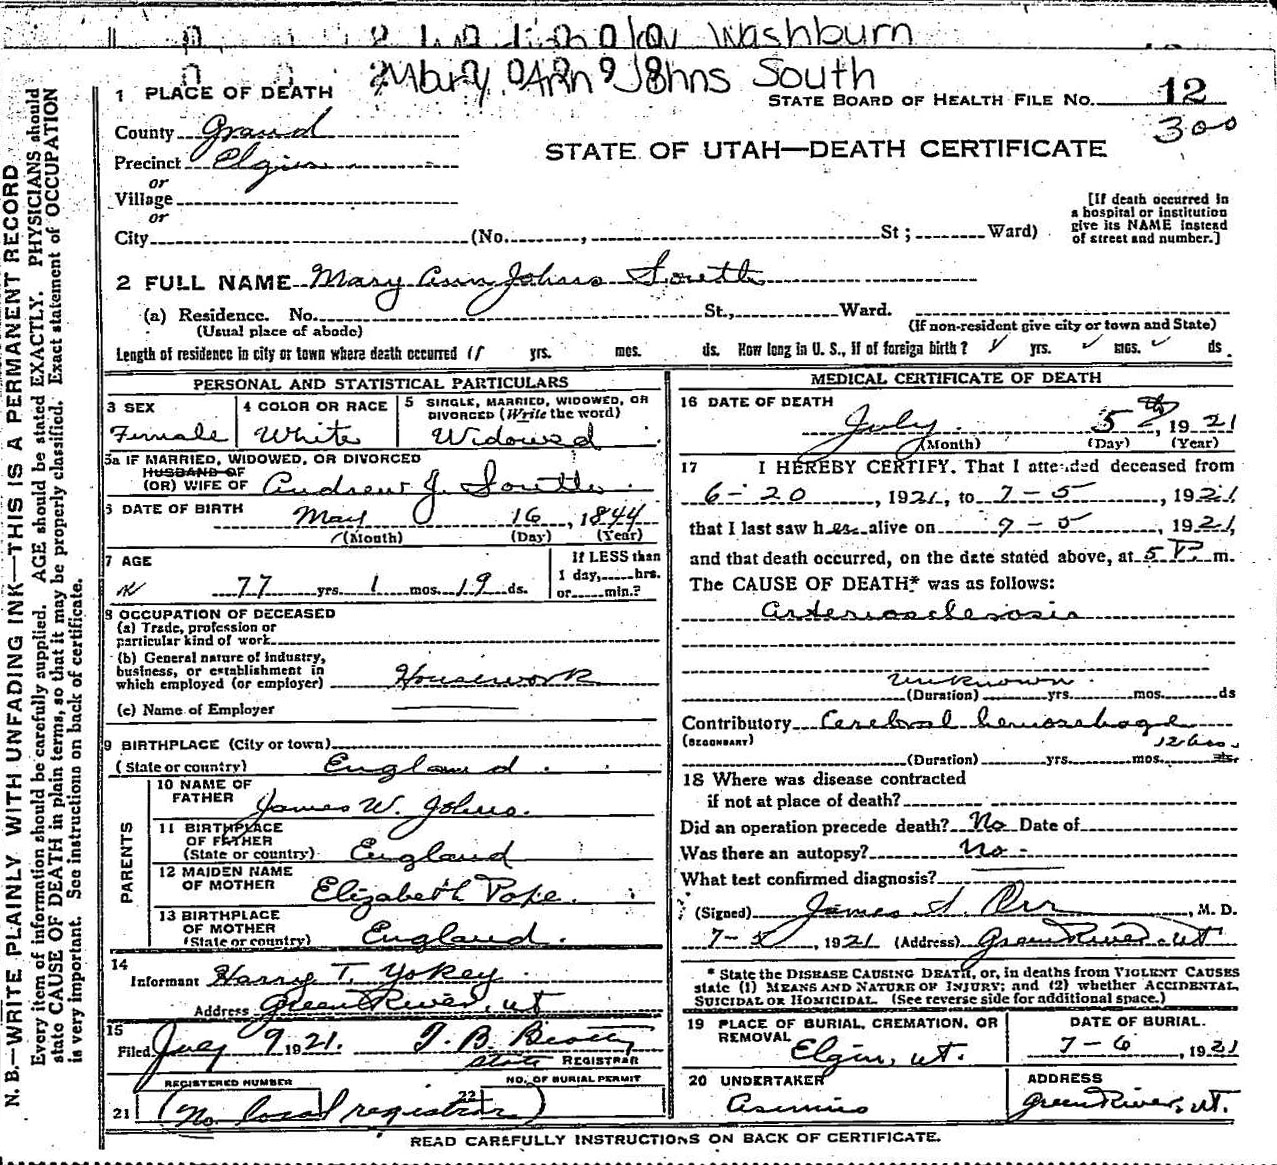 Washburn
Mary Ann Johns South
1 PLACE OF DEATH
STATE BOARD OF HEALTH FILE NO. 12
300
County Grand
STATE OF UTAH—DEATH CERTIFICATE
Precinct Elgin
or
Village
or
City (No. , St ; Ward)
[If death occurred in
a hospital or institution
give its NAME instead
of street and number.]
2 FULL NAME Mary Ann Johns South
(a) Residence. No. St., Ward.
(Usual place of abode) (If non-resident give city or town and State)
Length of residence in city or town where death occurred yrs. mos. ds. How long in U. S., if of foreign birth? yrs. mos. ds.
PERSONAL AND STATISTICAL PARTICULARS
3 SEX
Female
4 COLOR OR RACE
White
5 SINGLE, MARRIED, WIDOWED, OR
DIVORCED (Write the word)
Widowed
5a IF MARRIED, WIDOWED, OR DIVORCED
HUSBAND OF
(OR) WIFE OF Andrew J. South
6 DATE OF BIRTH May 16, 1844
(Month) (Day) (Year)
7 AGE
77 yrs. 1 mos. 19 ds.
If LESS than
1 day, hrs.
or min.?
8 OCCUPATION OF DECEASED
(a) Trade, profession or
particular kind of work
(b) General nature of industry,
business, or establishment in
which employed (or employer) Housework
(c) Name of Employer
9 BIRTHPLACE (City or town)
(State or country) England.
PARENTS
10 NAME OF
FATHER James W. Johns.
11 BIRTHPLACE
OF FATHER
(State or country) England
12 MAIDEN NAME
OF MOTHER Elizabeth Pope.
13 BIRTHPLACE
OF MOTHER
(State or country) England.
14
Informant Harry T. Yokey
Address Green River, ut
15
Filed July 9 1921. T. B. Beatty
State REGISTRAR
REGISTERED NUMBER
NO. OF BURIAL PERMIT
21 (No local registrar) 22
MEDICAL CERTIFICATE OF DEATH
16 DATE OF DEATH
July 5th, 1921
(Month) (Day) (Year)
17 I HEREBY CERTIFY, That I attended deceased from
6-20, 1921, to 7-5, 1921
that I last saw her alive on 7-5, 1921,
and that death occurred, on the date stated above, at 5 P. m.
The CAUSE OF DEATH* was as follows:
arteriosclerosis
unknown.
(Duration) yrs. mos. ds
Contributory Cerebral hemorrhage
(SECONDARY) 12 hrs.
(Duration) yrs. mos. ds.
18 Where was disease contracted
if not at place of death?
Did an operation precede death? No Date of
Was there an autopsy? No -
What test confirmed diagnosis?
(Signed) James S. Orr, M. D.
7-5, 1921 (Address) Green River, ut
* State the DISEASE CAUSING DEATH, or, in deaths from VIOLENT CAUSES
state (1) MEANS AND NATURE OF INJURY; and (2) whether ACCIDENTAL,
SUICIDAL OR HOMICIDAL. (See reverse side for additional space.)
19 PLACE OF BURIAL, CREMATION, OR
REMOVAL Elgin, ut.
DATE OF BURIAL.
7-6, 1921
20 UNDERTAKER
ADDRESS
Green River, ut.
READ CAREFULLY INSTRUCTIONS ON BACK OF CERTIFICATE.
N. B.—WRITE PLAINLY WITH UNFADING INK—THIS IS A PERMANENT RECORD
Every item of information should be carefully supplied. AGE should be stated EXACTLY. PHYSICIANS should
state CAUSE OF DEATH in plain terms, so that it may be properly classified. Exact statement of OCCUPATION
is very important. See instructions on back of certificate.